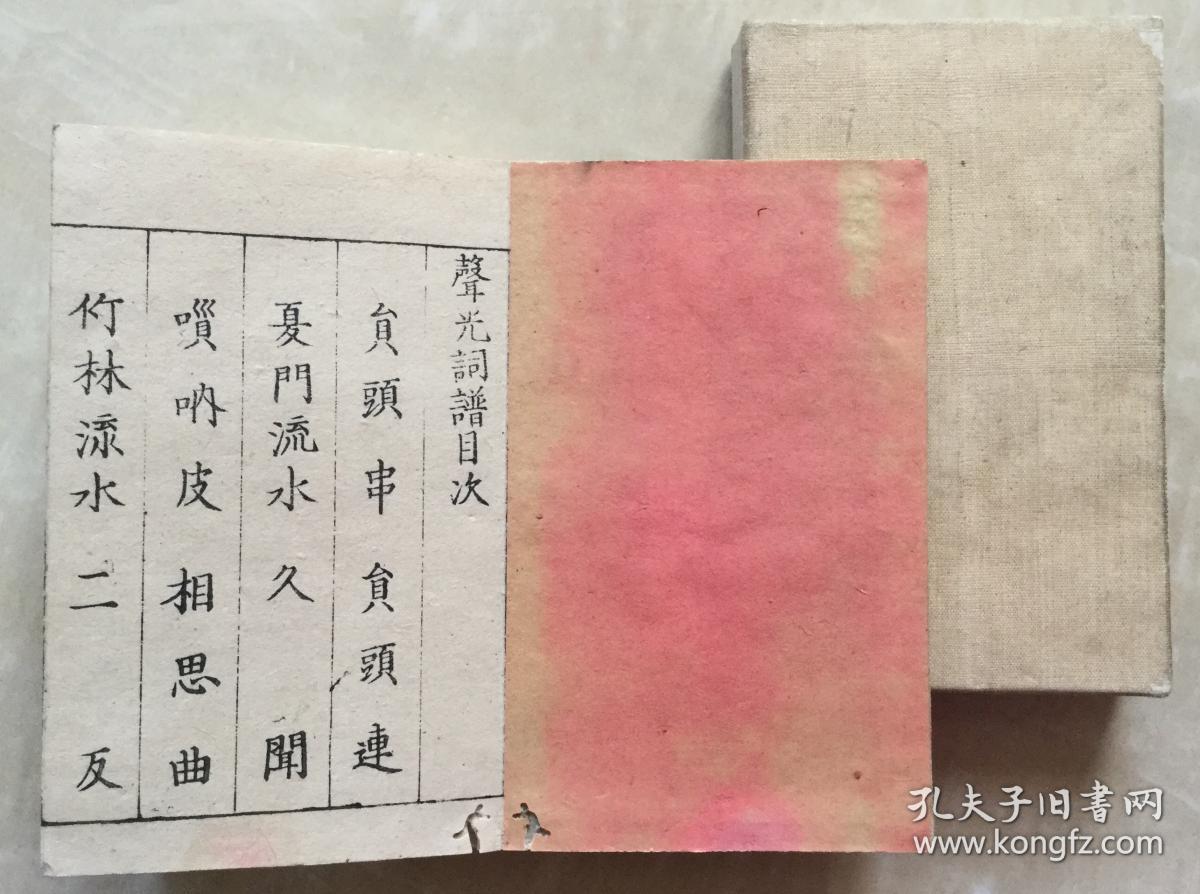 聲光詞譜目次
貟頭串 貟頭連
戛門流水 久聞
嗩吶皮 相思曲
竹林流水 二反
孔夫子旧書网
www.kongfz.com